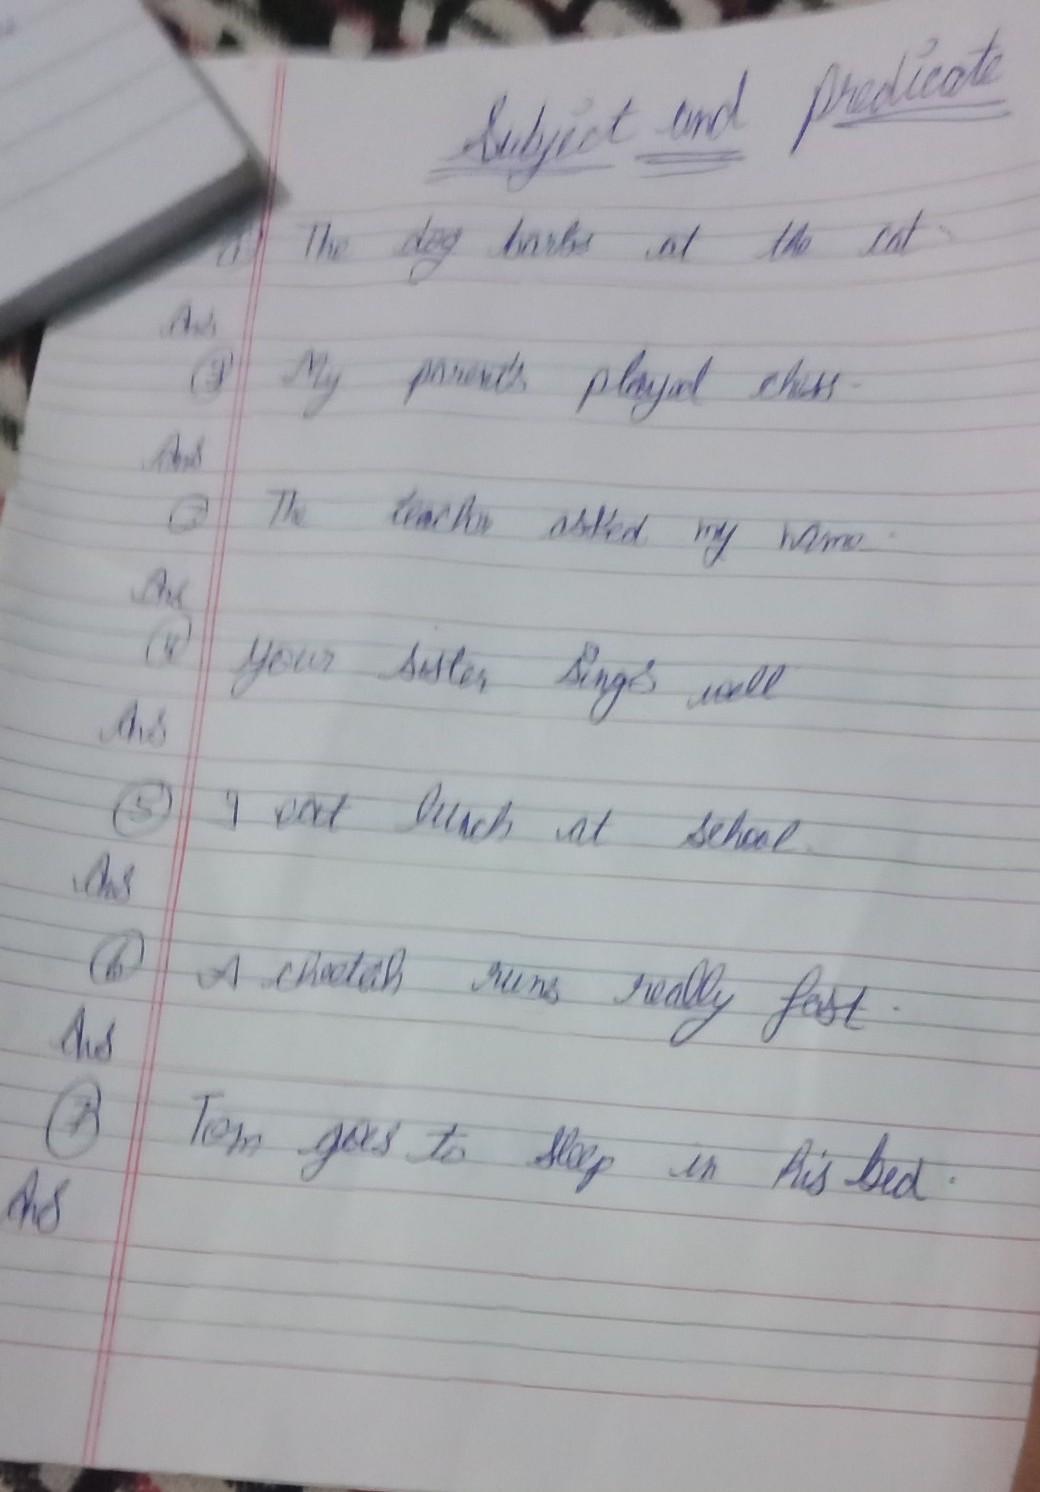 Subject and predicate
1) The dog barks at the cat.
Ans
2) My parents played chess.
Ans
3) The teacher asked my name.
Ans
(4) Your sister sings well
Ans
(5) I eat lunch at school.
Ans
(6) A cheetah runs really fast.
Ans
(7) Tom goes to sleep in his bed.
Ans